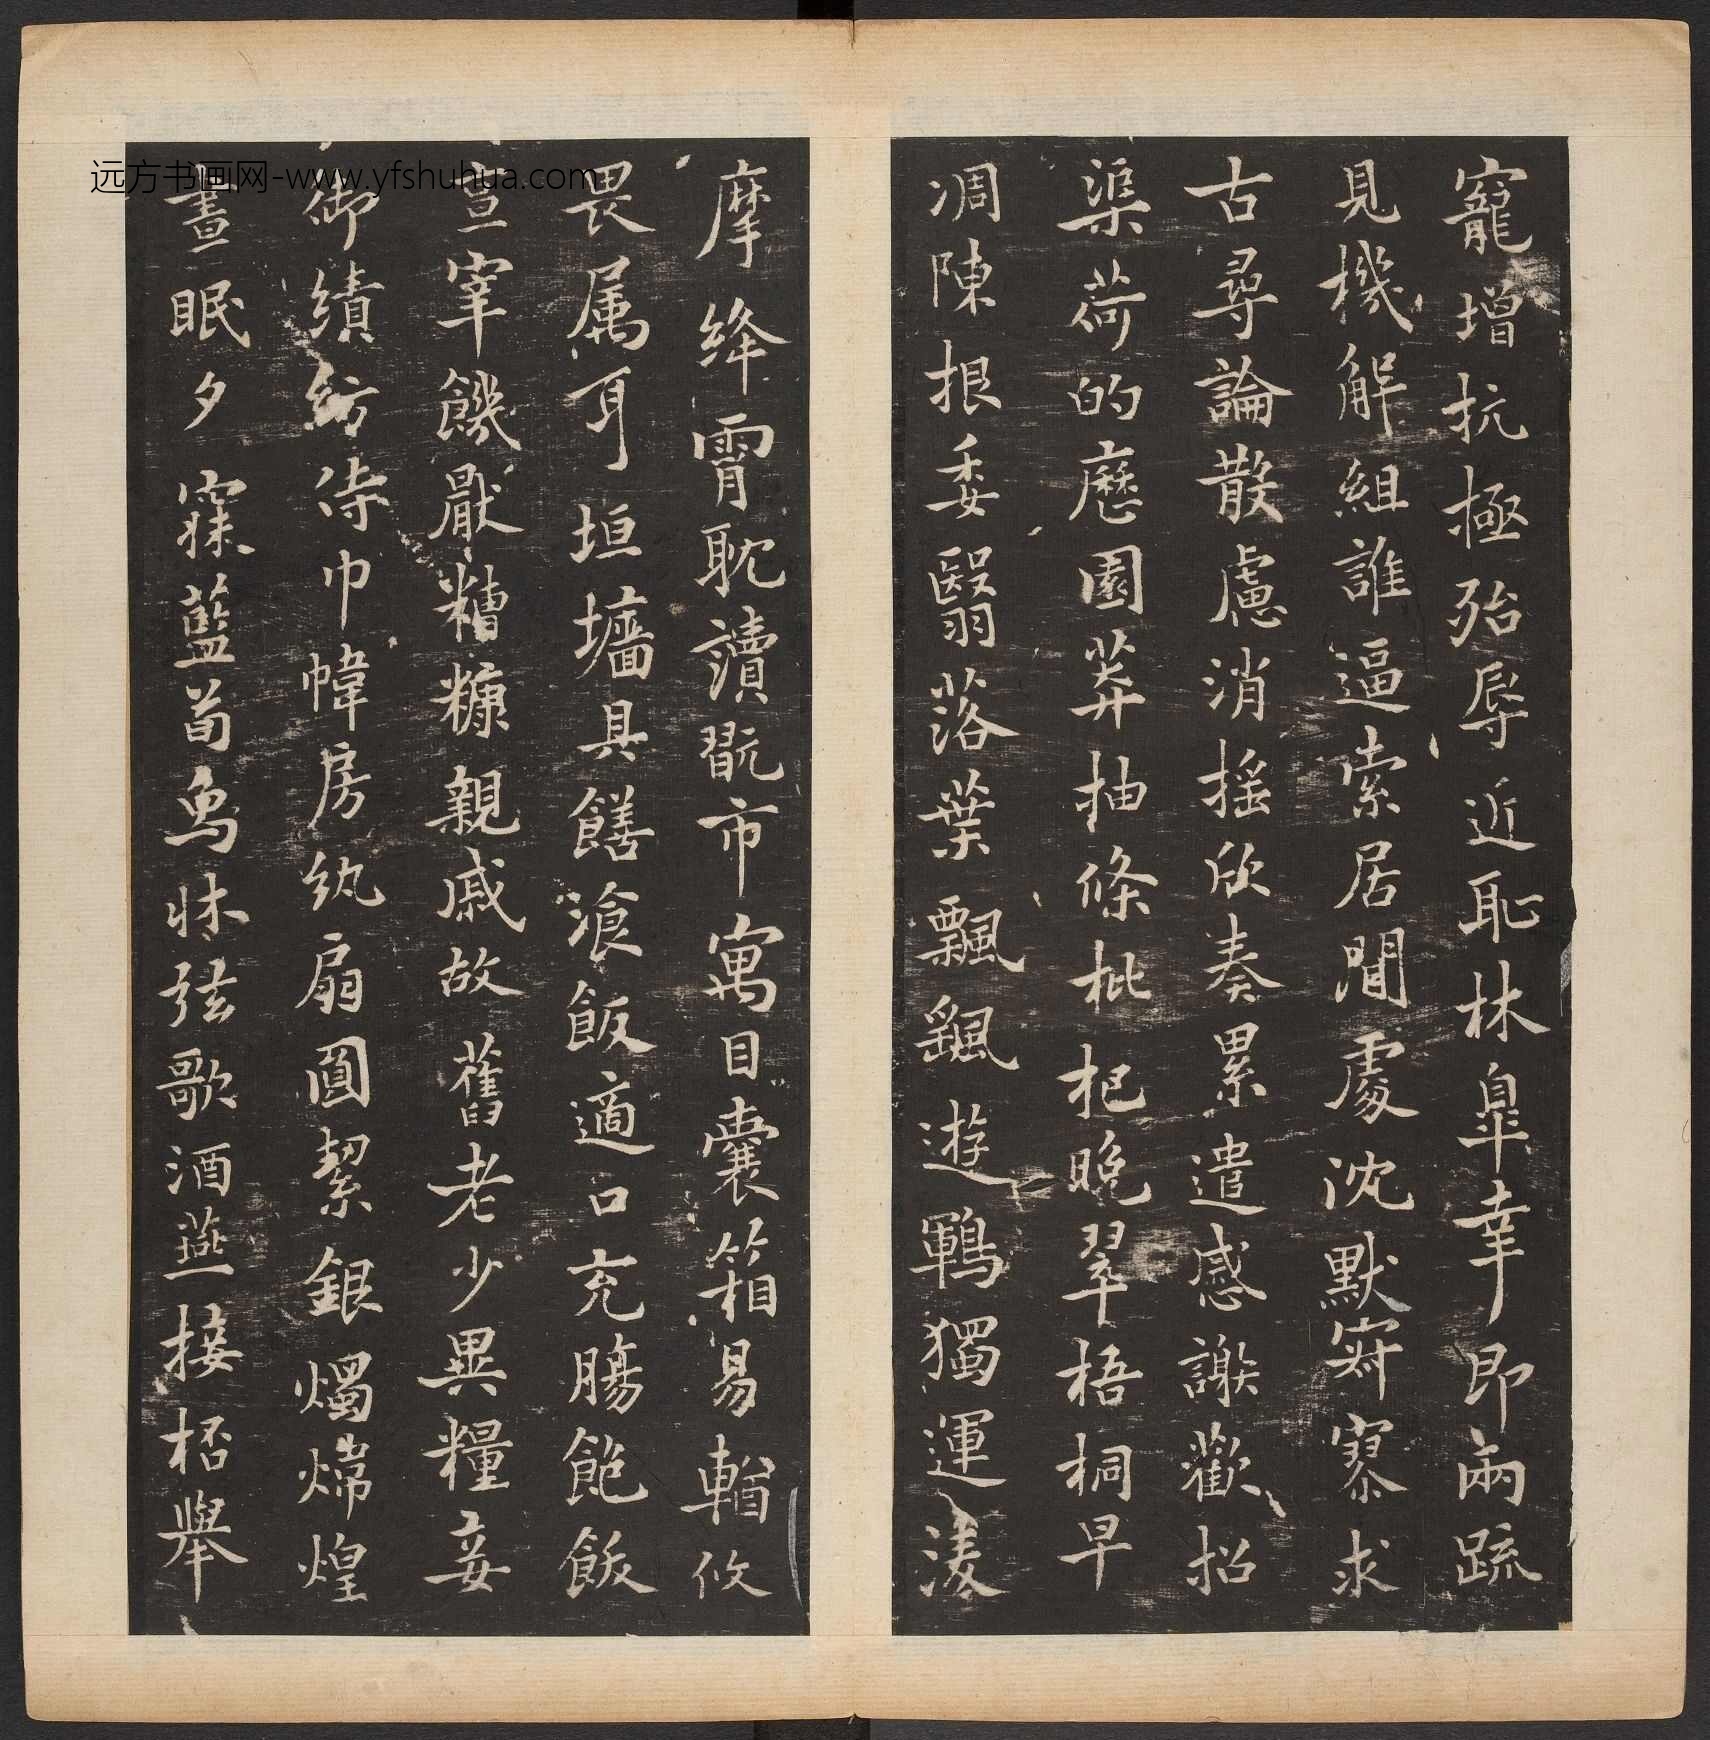 寵增抗極殆辱近耻林皐幸即兩疏
見機解組誰逼索居閒處沈默寂寥求
古尋論散慮消摇欣奏累遣感謝歡招
渠荷的歷園莽抽條枇杷晚翠梧桐早
凋陳根委翳落葉飄颻遊鵾獨運淩
摩絳霄耽讀翫市寓目囊箱易輶攸
畏属耳垣墻具饍飡飯適口充腸飽飫
亯宰饑厭糟糠親戚故舊老少異糧妾
御績紡侍巾幃房紈扇圓絜銀燭煒煌
晝眠夕寐藍荀象牀弦歌酒燕接桮舉
远方书画网-www.yfshuhua.com